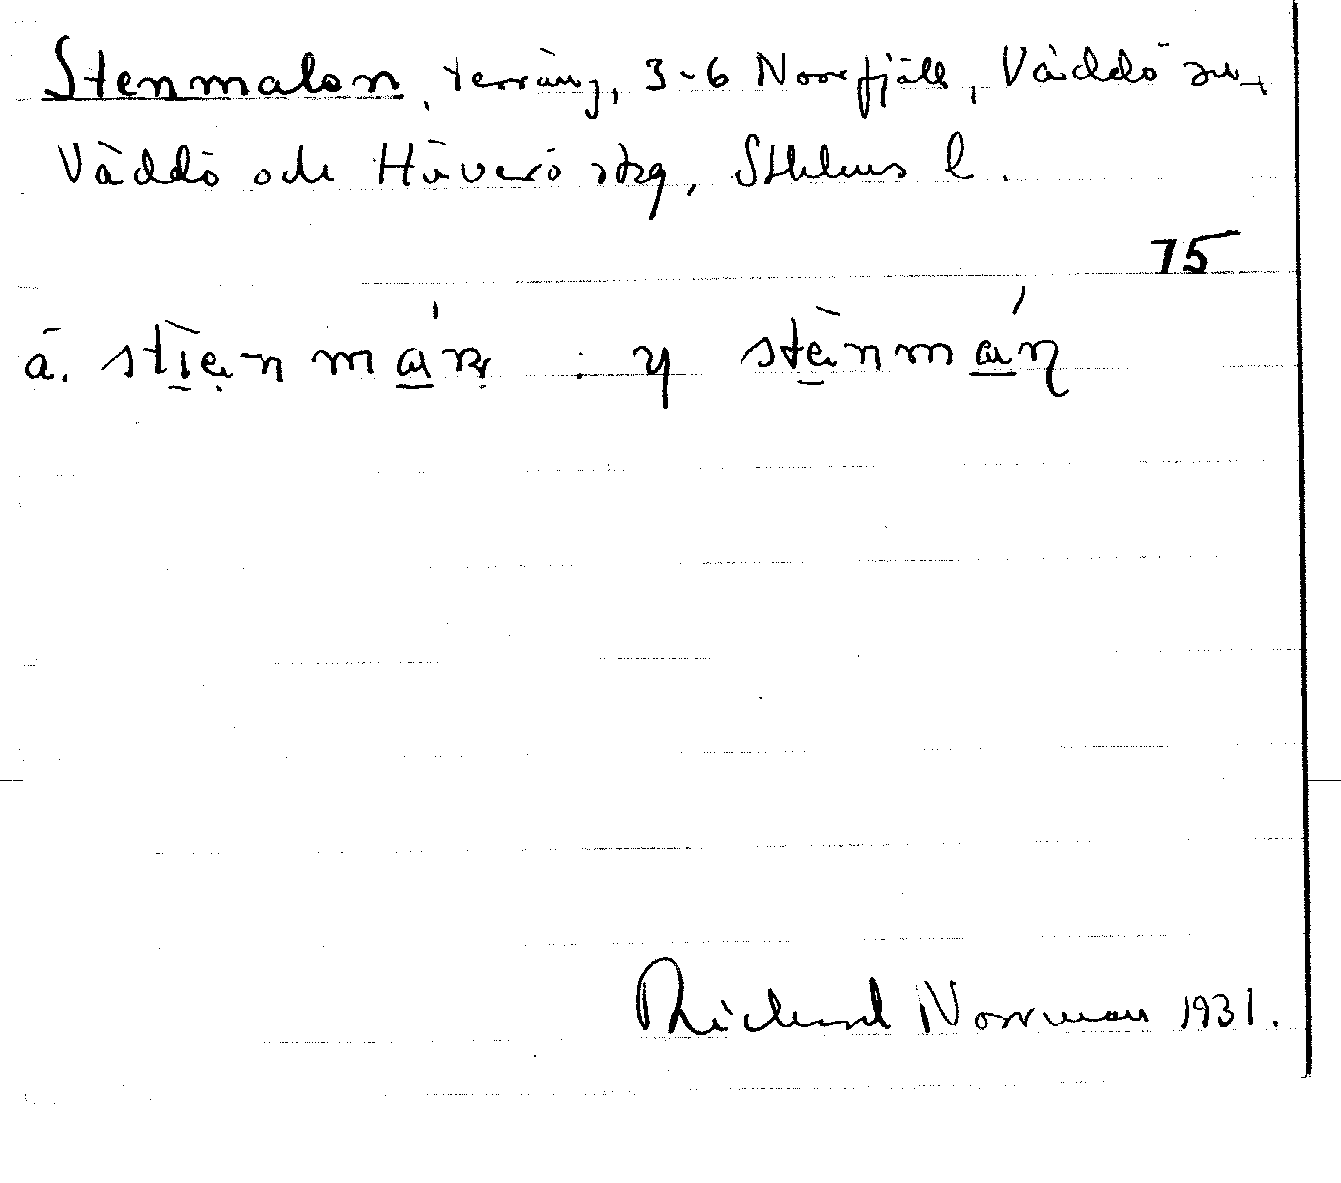 Stenmalen, terräng, 3-6 Norrfjäll, Väddö sn,
Väddö och Häverö skg, Sthlms l.
75
ä. : y
Richard Norrman 1931.